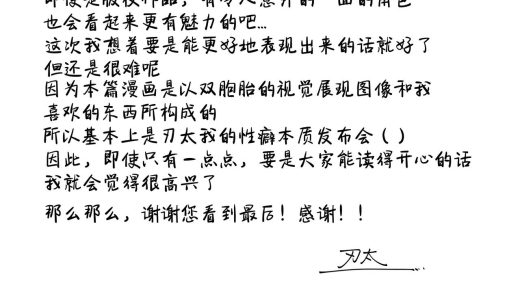 也会看起来更有魅力的吧…
这次我想着要是能更好地表现出来的话就好了
但还是很难呢
因为本篇漫画是以双胞胎的视觉展现图像和我
喜欢的东西所构成的
所以基本上是刃太我的性癖本质发布会（）
因此，即使只有一点点，要是大家能读得开心的话
我就会觉得很高兴了
那么那么，谢谢您看到最后！感谢！！
刃太